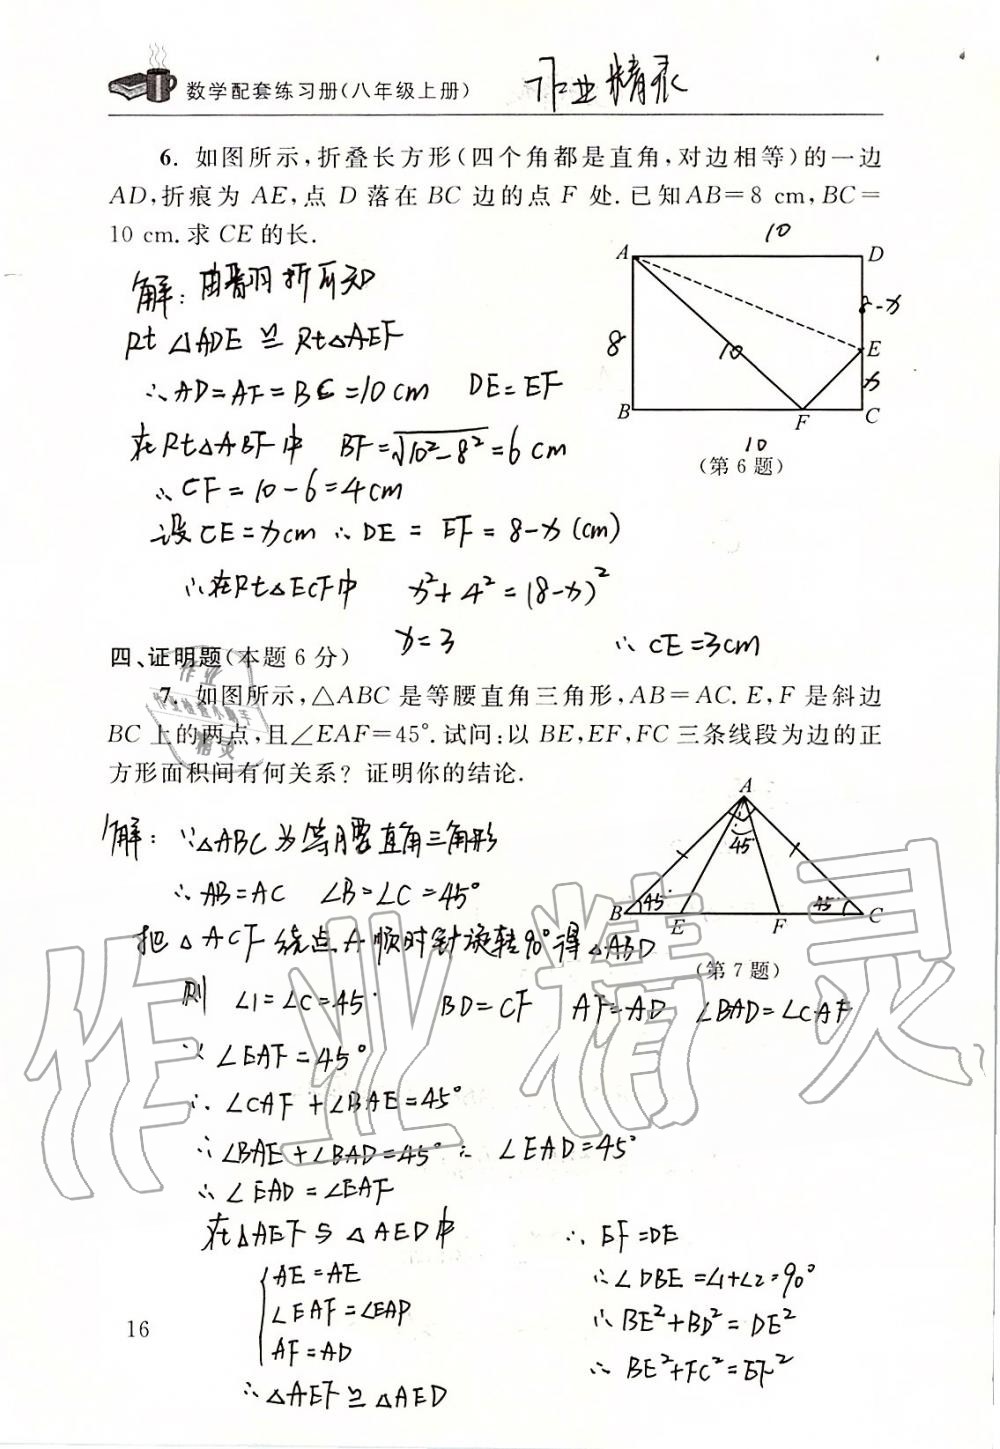 数学配套练习册(八年级上册)
作业精灵
6. 如图所示,折叠长方形(四个角都是直角,对边相等)的一边
AD,折痕为 AE,点 D 落在 BC 边的点 F 处.已知AB=8 cm,BC=
10 cm.求 CE 的长.
10
A
D
8-x
8
10
E
x
B
F
C
10
(第 6 题)
解:由翻折可知
Rt△ADE≌Rt△AEF
∴AD=AF=BC=10cm DE=EF
在Rt△ABF中 BF=√10²-8²=6cm
∴CF=10-6=4cm
设CE=xcm ∴DE = EF=8-x(cm)
∴在Rt△ECF中 x²+4²=(8-x)²
x=3 ∴CE=3cm
四、证明题(本题 6 分)
7. 如图所示,△ABC 是等腰直角三角形,AB=AC. E,F 是斜边
BC 上的两点,且∠EAF=45°.试问:以 BE,EF,FC 三条线段为边的正
方形面积间有何关系? 证明你的结论.
A
45°
B
45°
E
F
45°
C
(第 7 题)
解:∵△ABC为等腰直角三角形
∴AB=AC ∠B=∠C=45°
把△ACF绕点A顺时针旋转90°得△ABD
则 ∠1=∠C=45° BD=CF AF=AD ∠BAD=∠CAF
∵∠EAF=45°
∴∠CAF+∠BAE=45°
∴∠BAE+∠BAD=45° ∴∠EAD=45°
∴∠EAD=∠EAF
在△AEF与△AED中
AE=AE
∠EAF=∠EAD
AF=AD
∴△AEF≌△AED
∴EF=DE
∴∠DBE=∠1+∠2=90°
∴BE²+BD²=DE²
∴BE²+FC²=EF²
16
作业
作业检查小助手
精灵
作业精灵